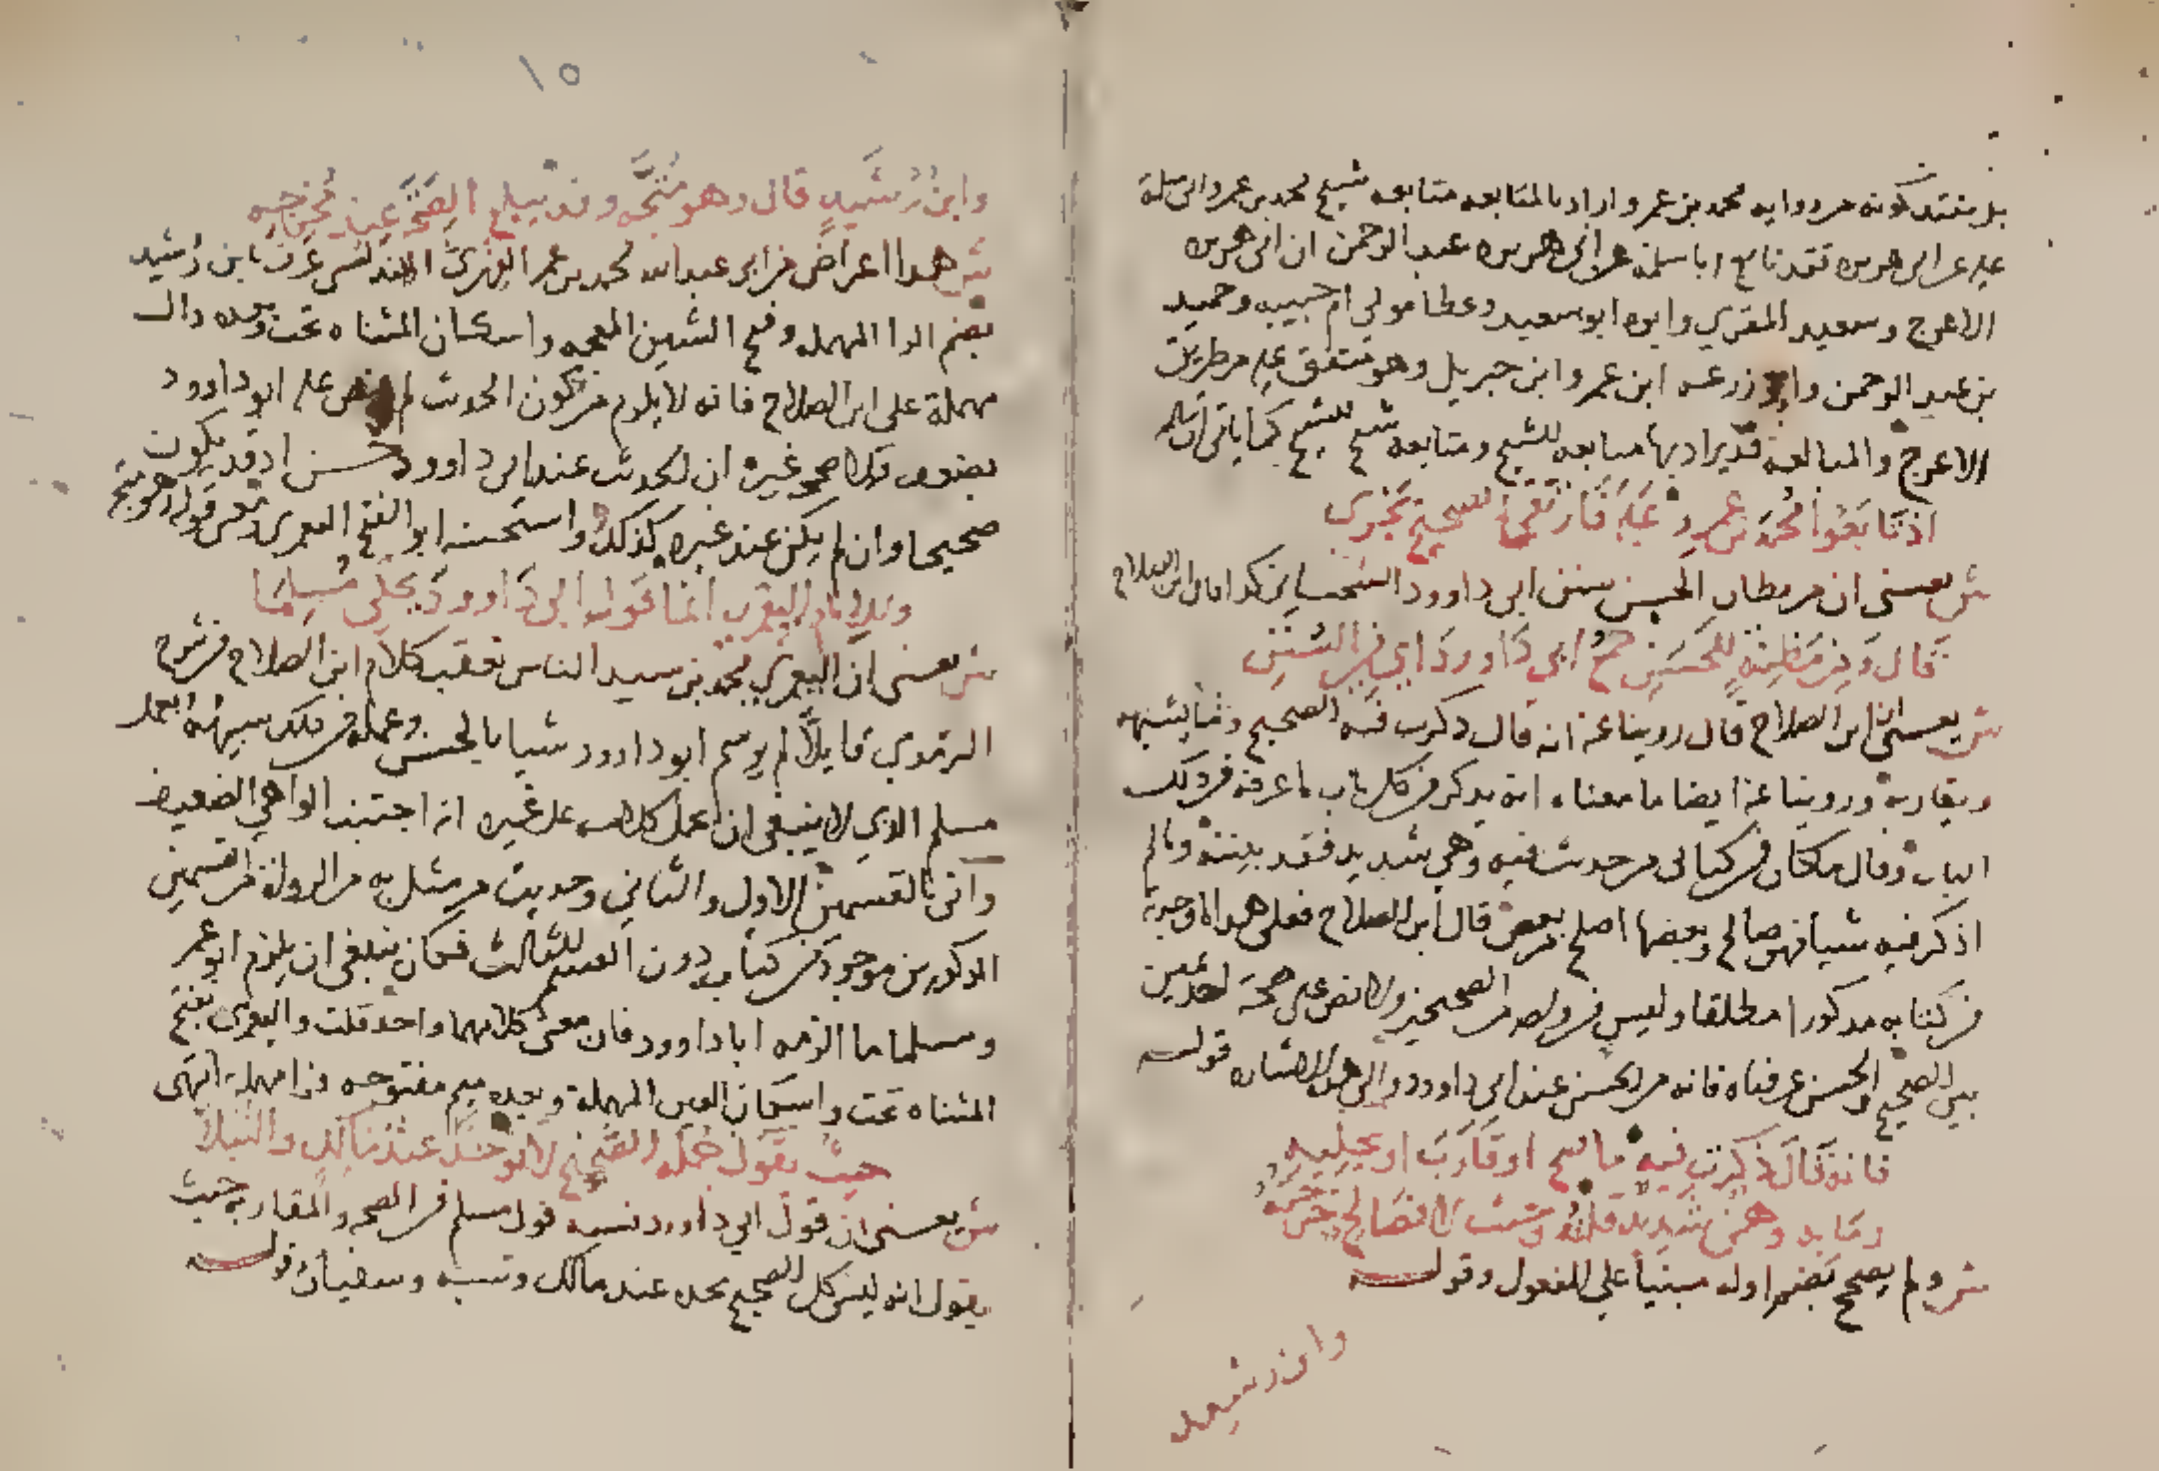 بل يفتقد كونه من رواية محمد بن عمر واراد بالمتابعه متابعه شيخ محمد بن عمر وابى سلمة
عليه عن ابى هريره فقد تابع اباسلمة عن ابى هريره عبد الرحمن ابن هرمز
الاعرج وسعيد المقبري وابوه ابوسعيد وعطا مولى ام حبيبه وحميد
بن عبد الرحمن وابو زرعه ابن عمر وابن جبريل وهو متفق عليه من طريق
الاعرج والمتابعة قد يراد بها متابعه الشيخ ومتابعه شيخ الشيخ كما ياتى
اذ تابعوا محمد بن عمرو عليه فارتقى الصحيح يجري
ش يعنى ان من مظان الحسن سنن ابى داوود السجستانى كذا قال ابن الصلاح
قال ومن مظنة للحسن جمع ابي داوود اي في السنن
ش يعنى ان ابن الصلاح قال روينا عنه انه قال ذكرت فيه الصحيح وما يشبهه
ويقاربه وروينا عنه ايضا ما معناه انه يذكر في كل باب ما عرفه في ذلك
الباب وقال ما كان في كتابى من حديث فيه وهن شديد فقد بينته ومالم
اذكر فيه شيأ فهو صالح وبعضها اصلح من بعض قال ابن الصلاح فعلى هذا ما وجدناه
في كتابه مذكورا مطلقا وليس في واحد من الصحيحين ولا نص على صحته احد ممن
بين الصحيح والحسن عرفناه فانه من الحسن عند ابى داوود والى هذا الاشاره قوله
فانه قال ذكرت فيه ما صح او قارب او يحكيه
وما به وهن شديد قلته وحيث لا فصالح خرجته
ش ولم يصحح بضم اوله مبنيأ على المفعول وقوله
وابن رشيد
١٥
وابن رشيد قال وهو متجه وقد يبلغ الصحة عند مخرجه
ش هذا اعتراض من ابى عبدالله محمد بن عمر الفهرى الاندلسى عرف بابن رشيد
بضم الرا المهمله وفتح الشين المعجمه واسكان المثناه تحت وبعده دال
مهملة على ابن الصلاح فانه لا يلزم من كون الحديث لم ينص عليه ابو داوود
بضعف ولا صححه غيره ان الحديث عند ابى داوود حسن اذ قد يكون
صحيحا وان لم يكن عند غيره كذلك واستحسنه ابو الفتح اليعمرى ومعنى قوله وهو متجه
وللامام اليعمرى انما قول ابى داوود يحكى مسلما
ش يعنى ان اليعمري محمد بن سيد الناس تعقب كلام ابن الصلاح في شرح
الترمذي قايلاً لم يرسم ابو داوود شيا بالحسن وعمله في ذلك شبيه بعمل
مسلم الذي لا ينبغى ان يحمل كلامه على غيره انه اجتنب الواهي الضعيف
واتى بالقسمين الاول والثاني وحديث من مثل به من الرواة من القسمين
المذكورين موجود في كتابه دون القسم الثالث فكان ينبغى ان يلزم ابو عمر
ومسلما ما الزمه ابا داوود فان معنى كلامهما واحد قلت واليعمرى بفتح
المثناه تحت واسكان العين المهملة وبعده ميم مفتوحه ورا مهملة انتهى
حيث يقول جملة الصحيح لا توجد عند مالك والنبلا
ش يعنى ان قول ابي داوود نسبه قول مسلم في الصحه والمقاربه حيث
يقول انه ليس كل الصحيح نجده عند مالك وشعبه وسفيان قوله